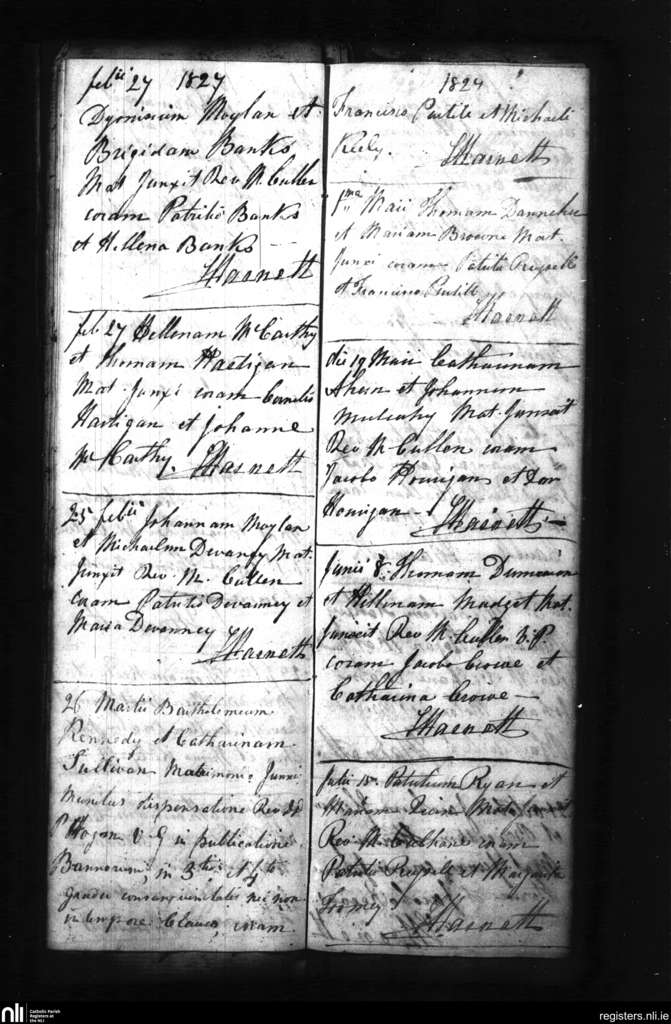 febii 27 1827
Dyonisium Moylan et
Brigidam Banks
Mat Junxit Rev M. Cullen
coram Patritio Banks
et Hellena Banks
feb 27 Hellenam McCarthy
et Thomam Hartigan
Mat Junxi coram Cornelio
Hartigan et Johanne
McCarthy. Harnett
25 febii Johannam Moylan
et Michaelem Devaney Mat.
Junxit Rev. M. Cullen
coram Patritio Devanney et
Maria Devanney Harnett
26 Martii Bartholomeum
Kennedy et Catharinam
Sullivan Matrimonio Junxi
dispensatione Rev
P Hogan V G in publicatione
Bannorum, in 3tio et 4to
gradu consanguinitatis nec non
in tempore Clauso, coram
1827
Francisco et Michaeli
Keely. Harnett
1ma Maii Thomam
et Mariam Browne Mat.
Junxi coram Patritio Russell
et Francisco
Harnett
die 19 Maii Catharinam
Ahern et Johannem
Mulcahy Mat. Junxit
Rev M Cullen coram
Jacobo Hourigan et
Hourigan Harnett
Junii 8. Thomam
et Hellenam Madget Mat.
Junxit Rev M. Cullen
coram Jacobo Crowe et
Catharina Crowe
Harnett
Julii Patritium Ryan et
Mariam Mat
Rev M. coram
Patritio Russell et Margarita
Harnett
nli
Catholic Parish
Registers at
the NLI
registers.nli.ie